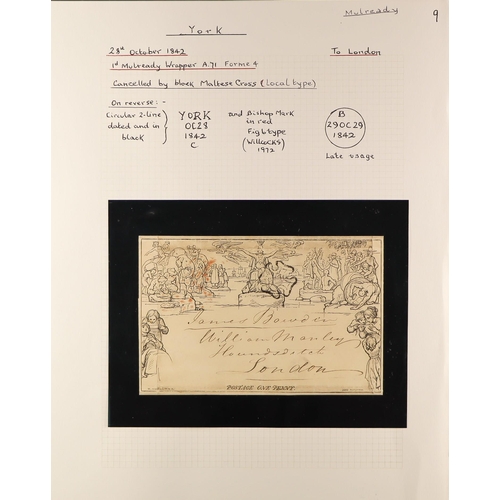 Mulready
9
York
28th October 1842
To London
1st Mulready Wrapper A.71 Forme 4
Cancelled by black Maltese Cross (local type)
On reverse:-
Circular 2-line
dated and in
black
YORK
OC28
1842
C
and Bishop Mark
in red
Fig 6 type
(Willcocks)
1972
B
29OC29
1842
Late usage
James Bowden
William Manley
Houndsditch
London
POSTAGE ONE PENNY.